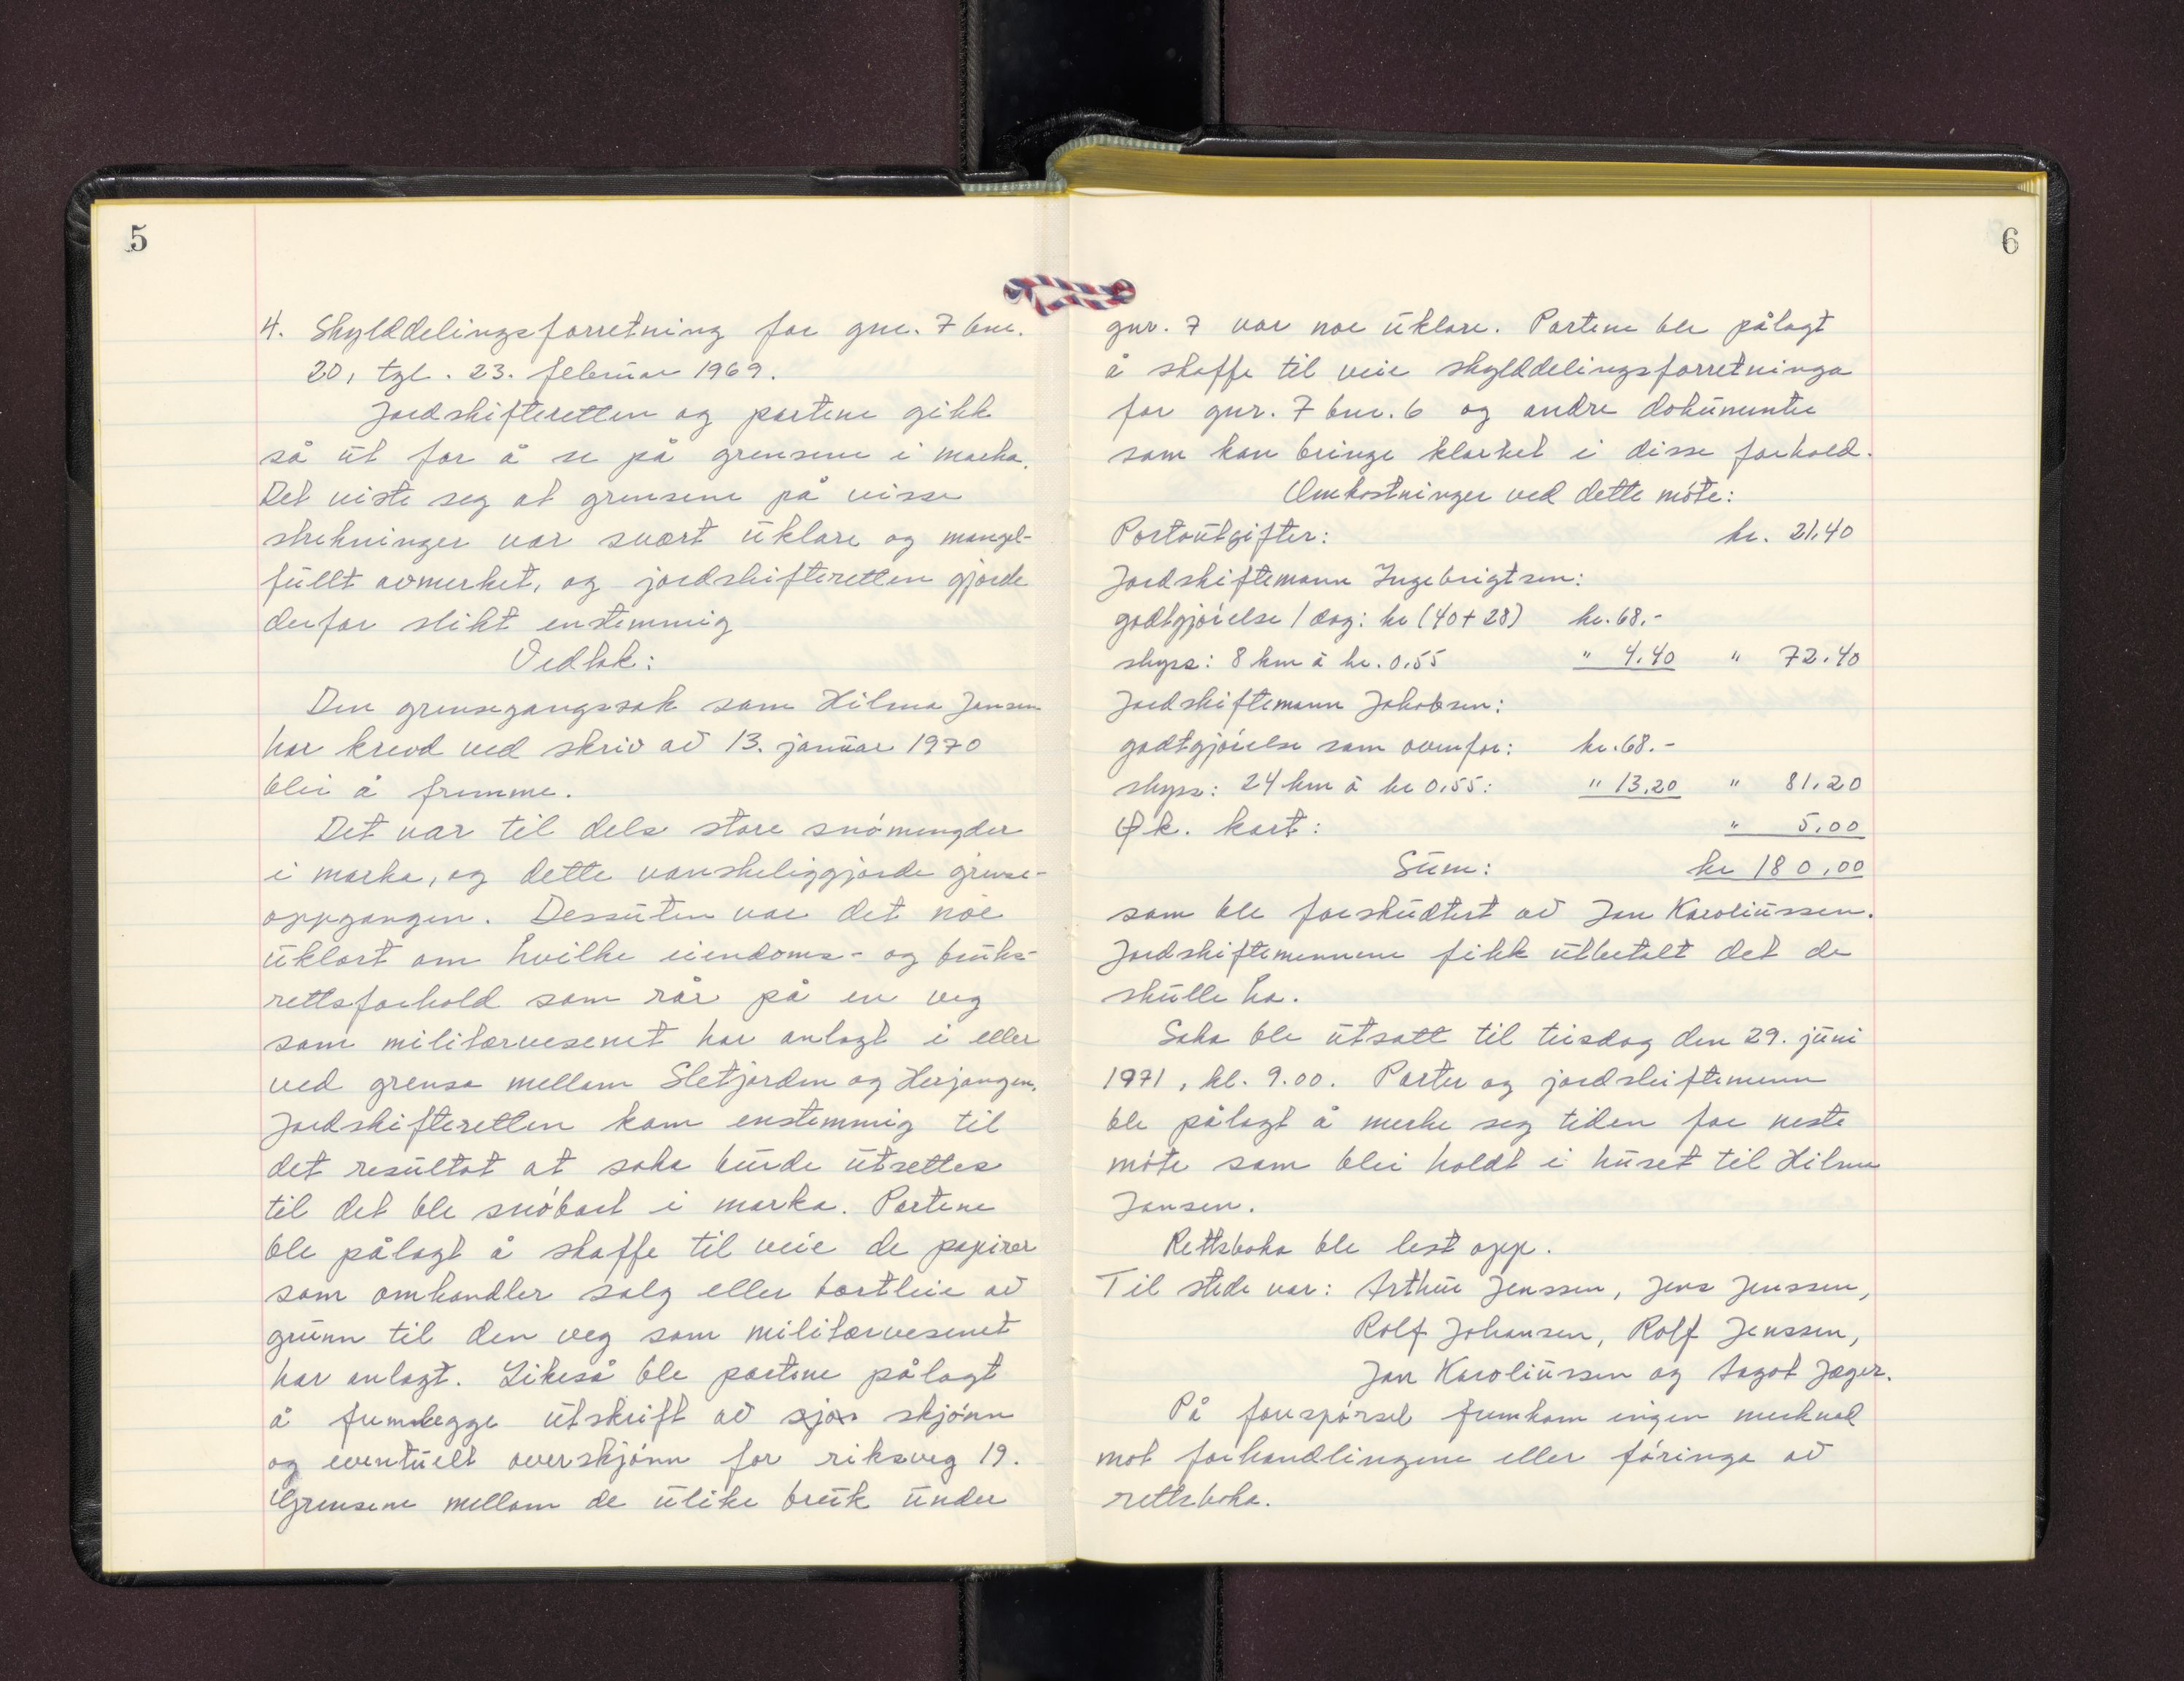 5
4. Skylddelingsforretning for gnr. 7 bnr.
20, tgl. 23. februar 1969.
Jordskifteretten og partene gikk
så ut for å se på grensene i marka.
Det viste seg at grensene på visse
strekninger var svært uklare og mangel-
fullt avmerket, og jordskifteretten gjorde
derfor slikt enstemmig
Vedtak:
Den grensegangssak som Hilma Jansen
har krevd ved skriv av 13. januar 1970
blir å fremme.
Det var til dels store snømengder
i marka, og dette vanskeliggjorde grense-
oppgangen. Dessuten var det noe
uklart om hvilke eiendoms- og bruks-
rettsforhold som rår på en veg
som militærvesenet har anlagt i eller
ved grensa mellom Sletjorden og Herjangen.
Jordskifteretten kom enstemmig til
det resultat at saka burde utsettes
til det ble snøbart i marka. Partene
ble pålagt å skaffe til veie de papirer
som omhandler salg eller bortleie av
grunn til den veg som militærvesenet
har anlagt. Likeså ble partene pålagt
å fremlegge utskrift av skjønn
og eventuelt overskjønn for riksveg 19.
Grensene mellom de ulike bruk under
6
gnr. 7 var noe uklare. Partene ble pålagt
å skaffe til veie skylddelingsforretninga
for gnr. 7 bnr. 6 og andre dokumenter
som kan bringe klarhet i disse forhold.
Omkostninger ved dette møte:
Portoutgifter: kr. 21,40
Jordskiftemann Ingebrigtsen:
godtgjørelse 1 dag: kr (40+28) kr. 68,-
skyss: 8 km à kr. 0,55 " 4,40 " 72,40
Jordskiftemann Jakobsen:
godtgjørelse som ovenfor: kr. 68.-
skyss: 24 km à kr 0,55: " 13,20 " 81,20
Øk. kart: " 5,00
Sum: kr 180,00
som ble forskuttert av Jan Karoliussen.
Jordskiftemennene fikk utbetalt det de
skulle ha.
Saka ble utsatt til tirsdag den 29. juni
1971, kl. 9.00. Parter og jordskiftemenn
ble pålagt å merke seg tiden for neste
møte som blir holdt i huset til Hilma
Jansen.
Rettsboka ble lest opp.
Til stede var: Arthur Jenssen, Jens Jenssen,
Rolf Johansen, Rolf Jenssen,
Jan Karoliussen og Aagot Jæger.
På forespørsel fremkom ingen merknad
mot forhandlingene eller føringa av
rettsboka.